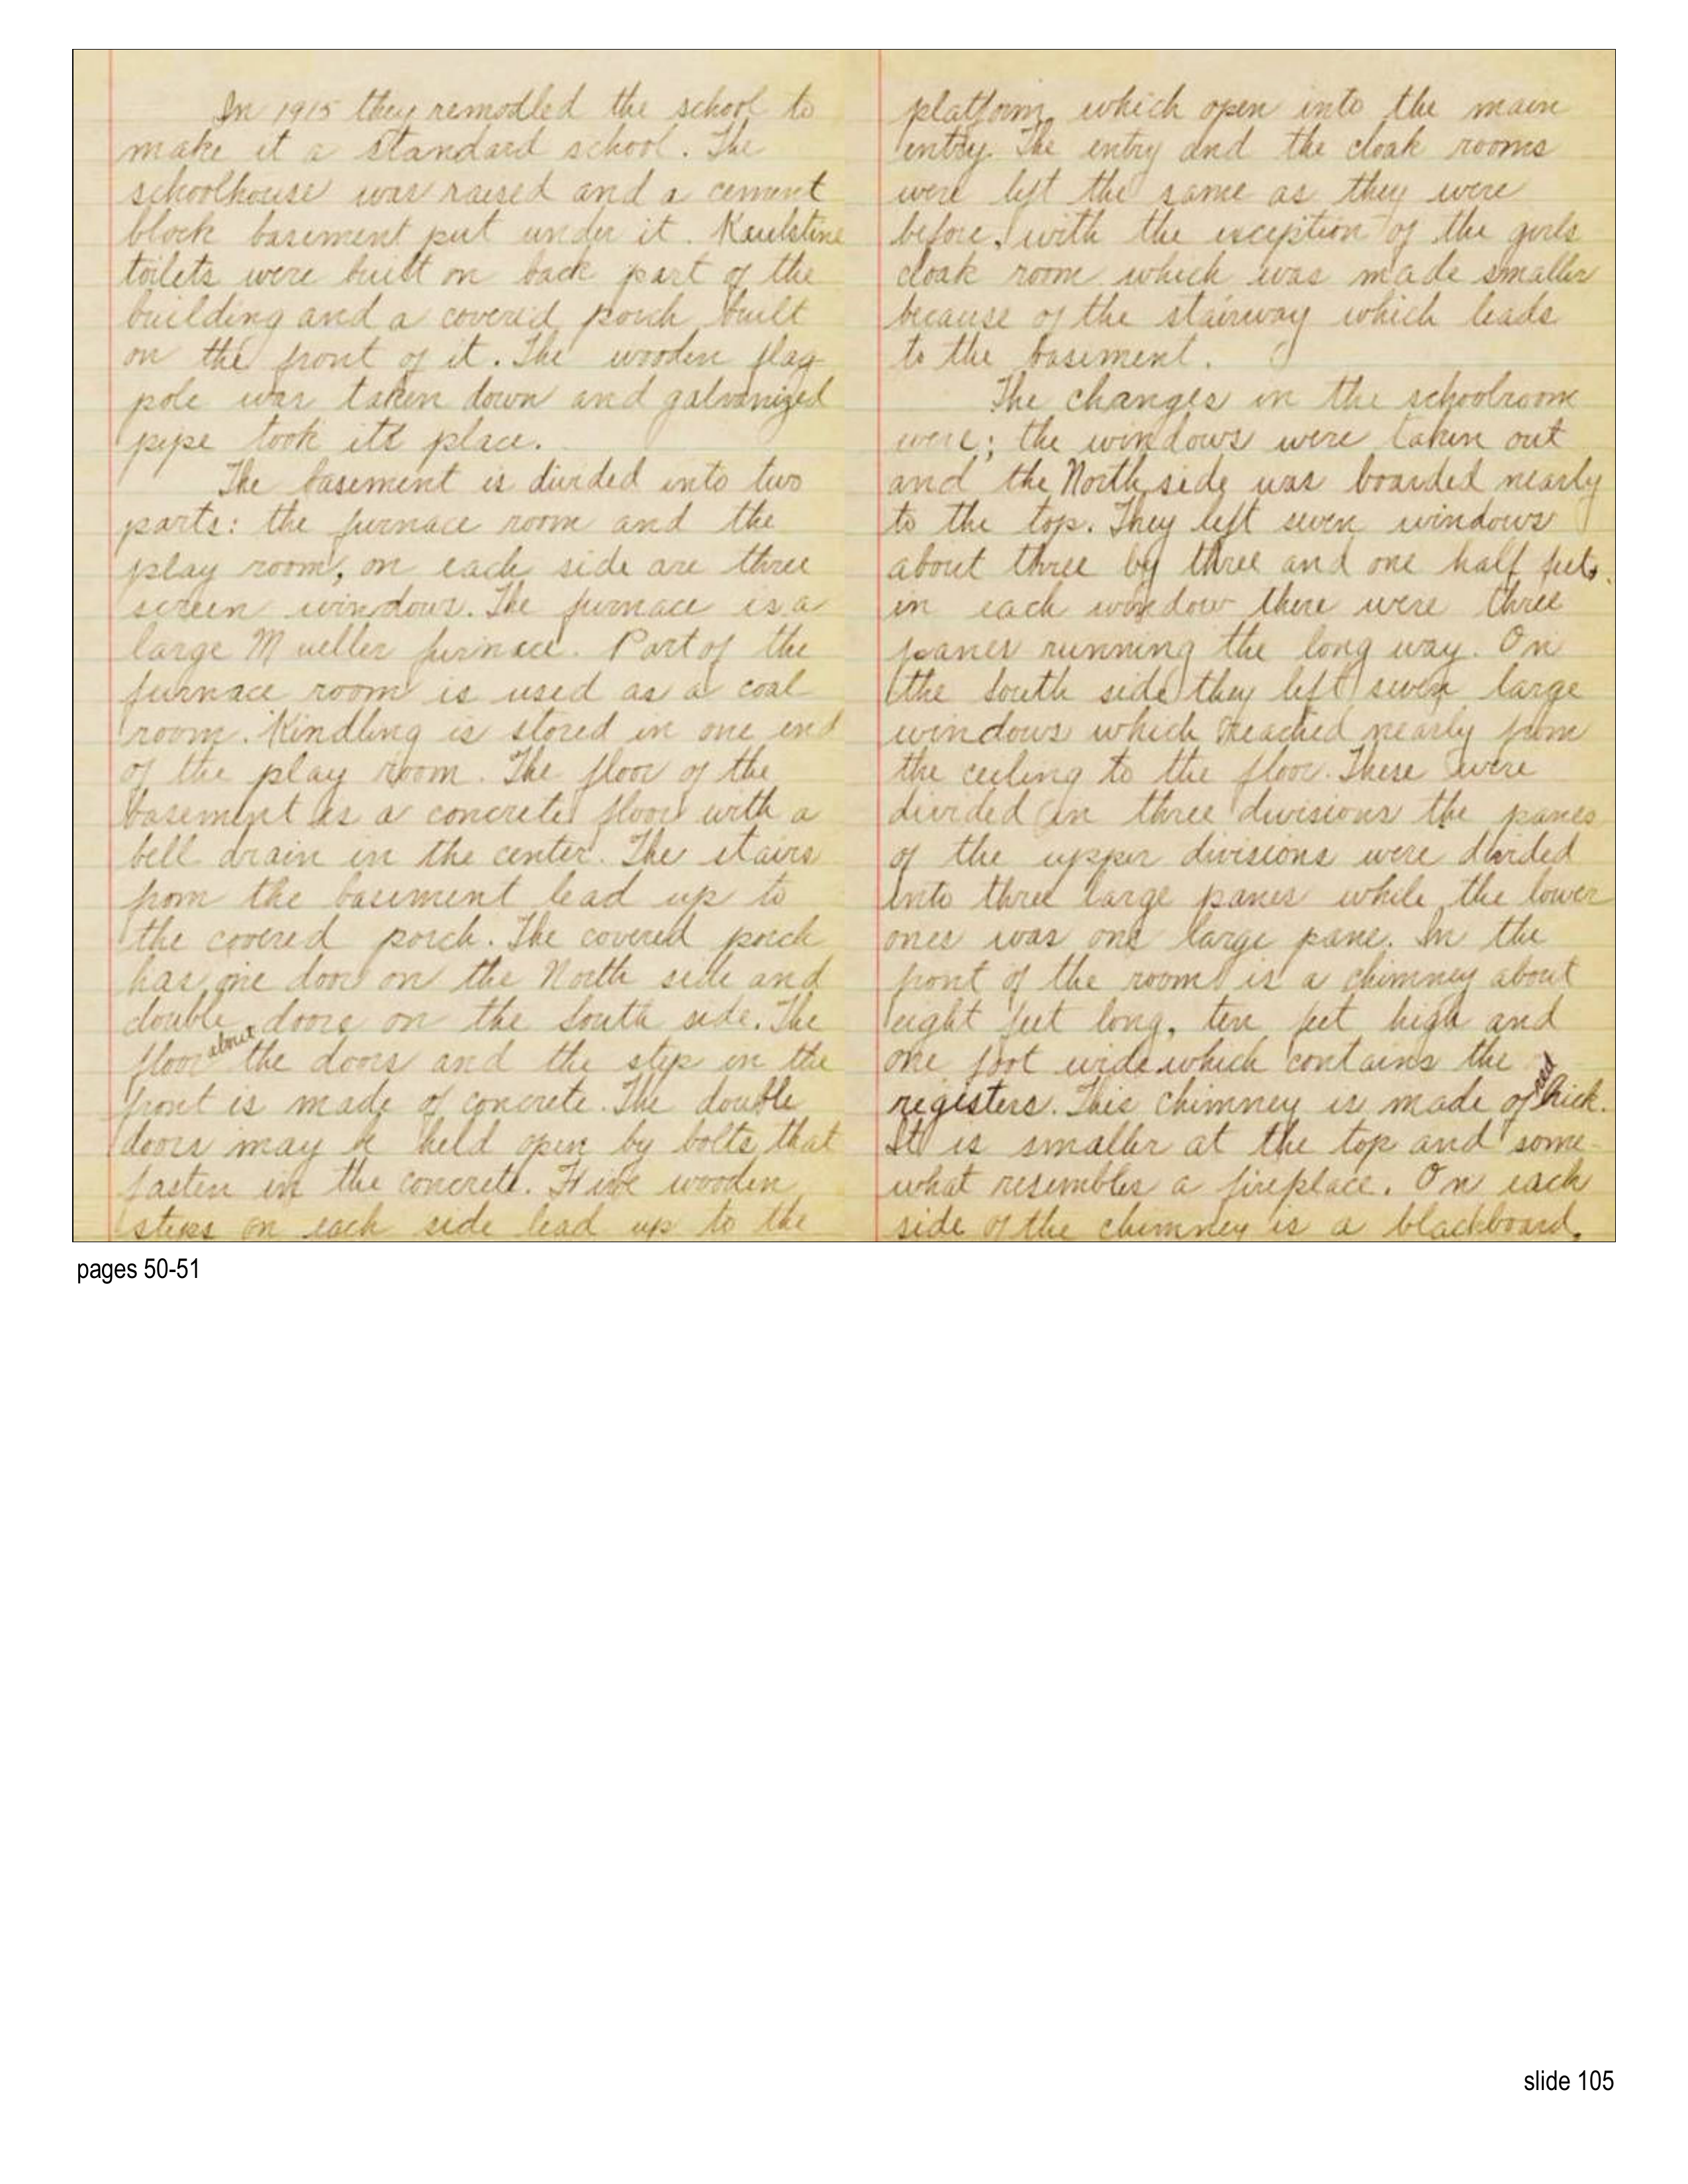 In 1915 they remodled the school to
make it a standard school. The
schoolhouse was raised and a cement
block basement put under it. Kaulstine
toilets were built on back part of the
building and a covered porch built
on the front of it. The wooden flag
pole was taken down and galvanized
pipe took its place.
The basement is divided into two
parts: the furnace room and the
play room, on each side are three
screen windows. The furnace is a
large Mueller furnace. Part of the
furnace room is used as a coal
room. Kindling is stored in one end
of the play room. The floor of the
basement is a concrete floor with a
bell drain in the center. The stairs
from the basement lead up to
the covered porch. The covered porch
has one door on the North side and
double doors on the South side. The
floor about the doors and the step in the
front is made of concrete. The double
doors may be held open by bolts that
fasten in the concrete. Five wooden
steps on each side lead up to the
platform, which open into the main
entry. The entry and the cloak rooms
were left the same as they were
before, with the exception of the girls
cloak room which was made smaller
because of the stairway which leads
to the basement.
The changes in the schoolroom
were; the windows were taken out
and the North side was boarded nearly
to the top. They left seven windows
about three by three and one half feet,
in each window there were three
panes running the long way. On
the South side they left seven large
windows which reached nearly from
the ceiling to the floor. These were
divided in three divisions the panes
of the upper divisions were divided
into three large panes while the lower
ones was one large pane. In the
front of the room is a chimney about
eight feet long, ten feet high and
one foot wide which contains the
registers. This chimney is made of red brick.
It is smaller at the top and some-
what resembles a fireplace. On each
side of the chimney is a blackboard.
pages 50-51
slide 105